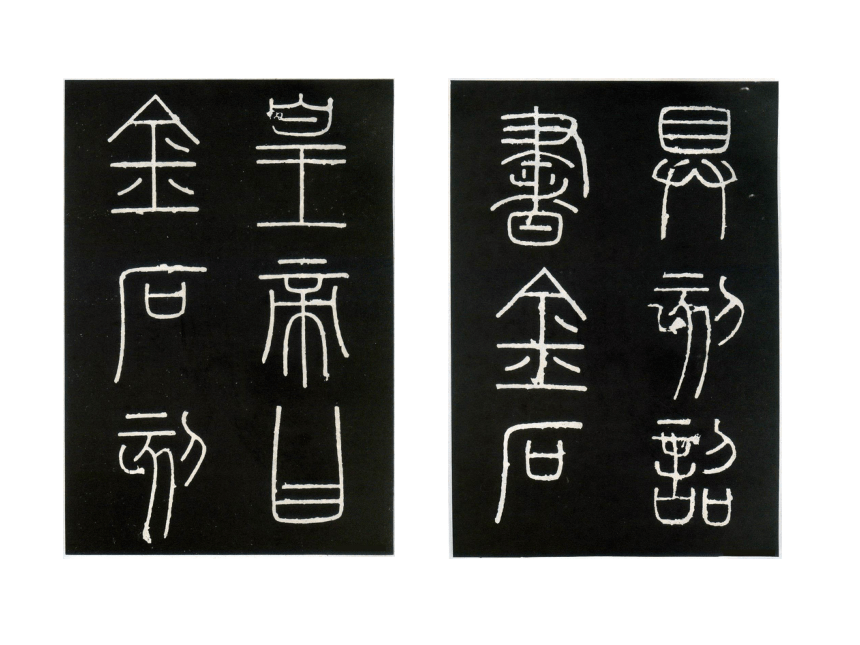 具刻詔
書金石
皇帝曰
金石刻